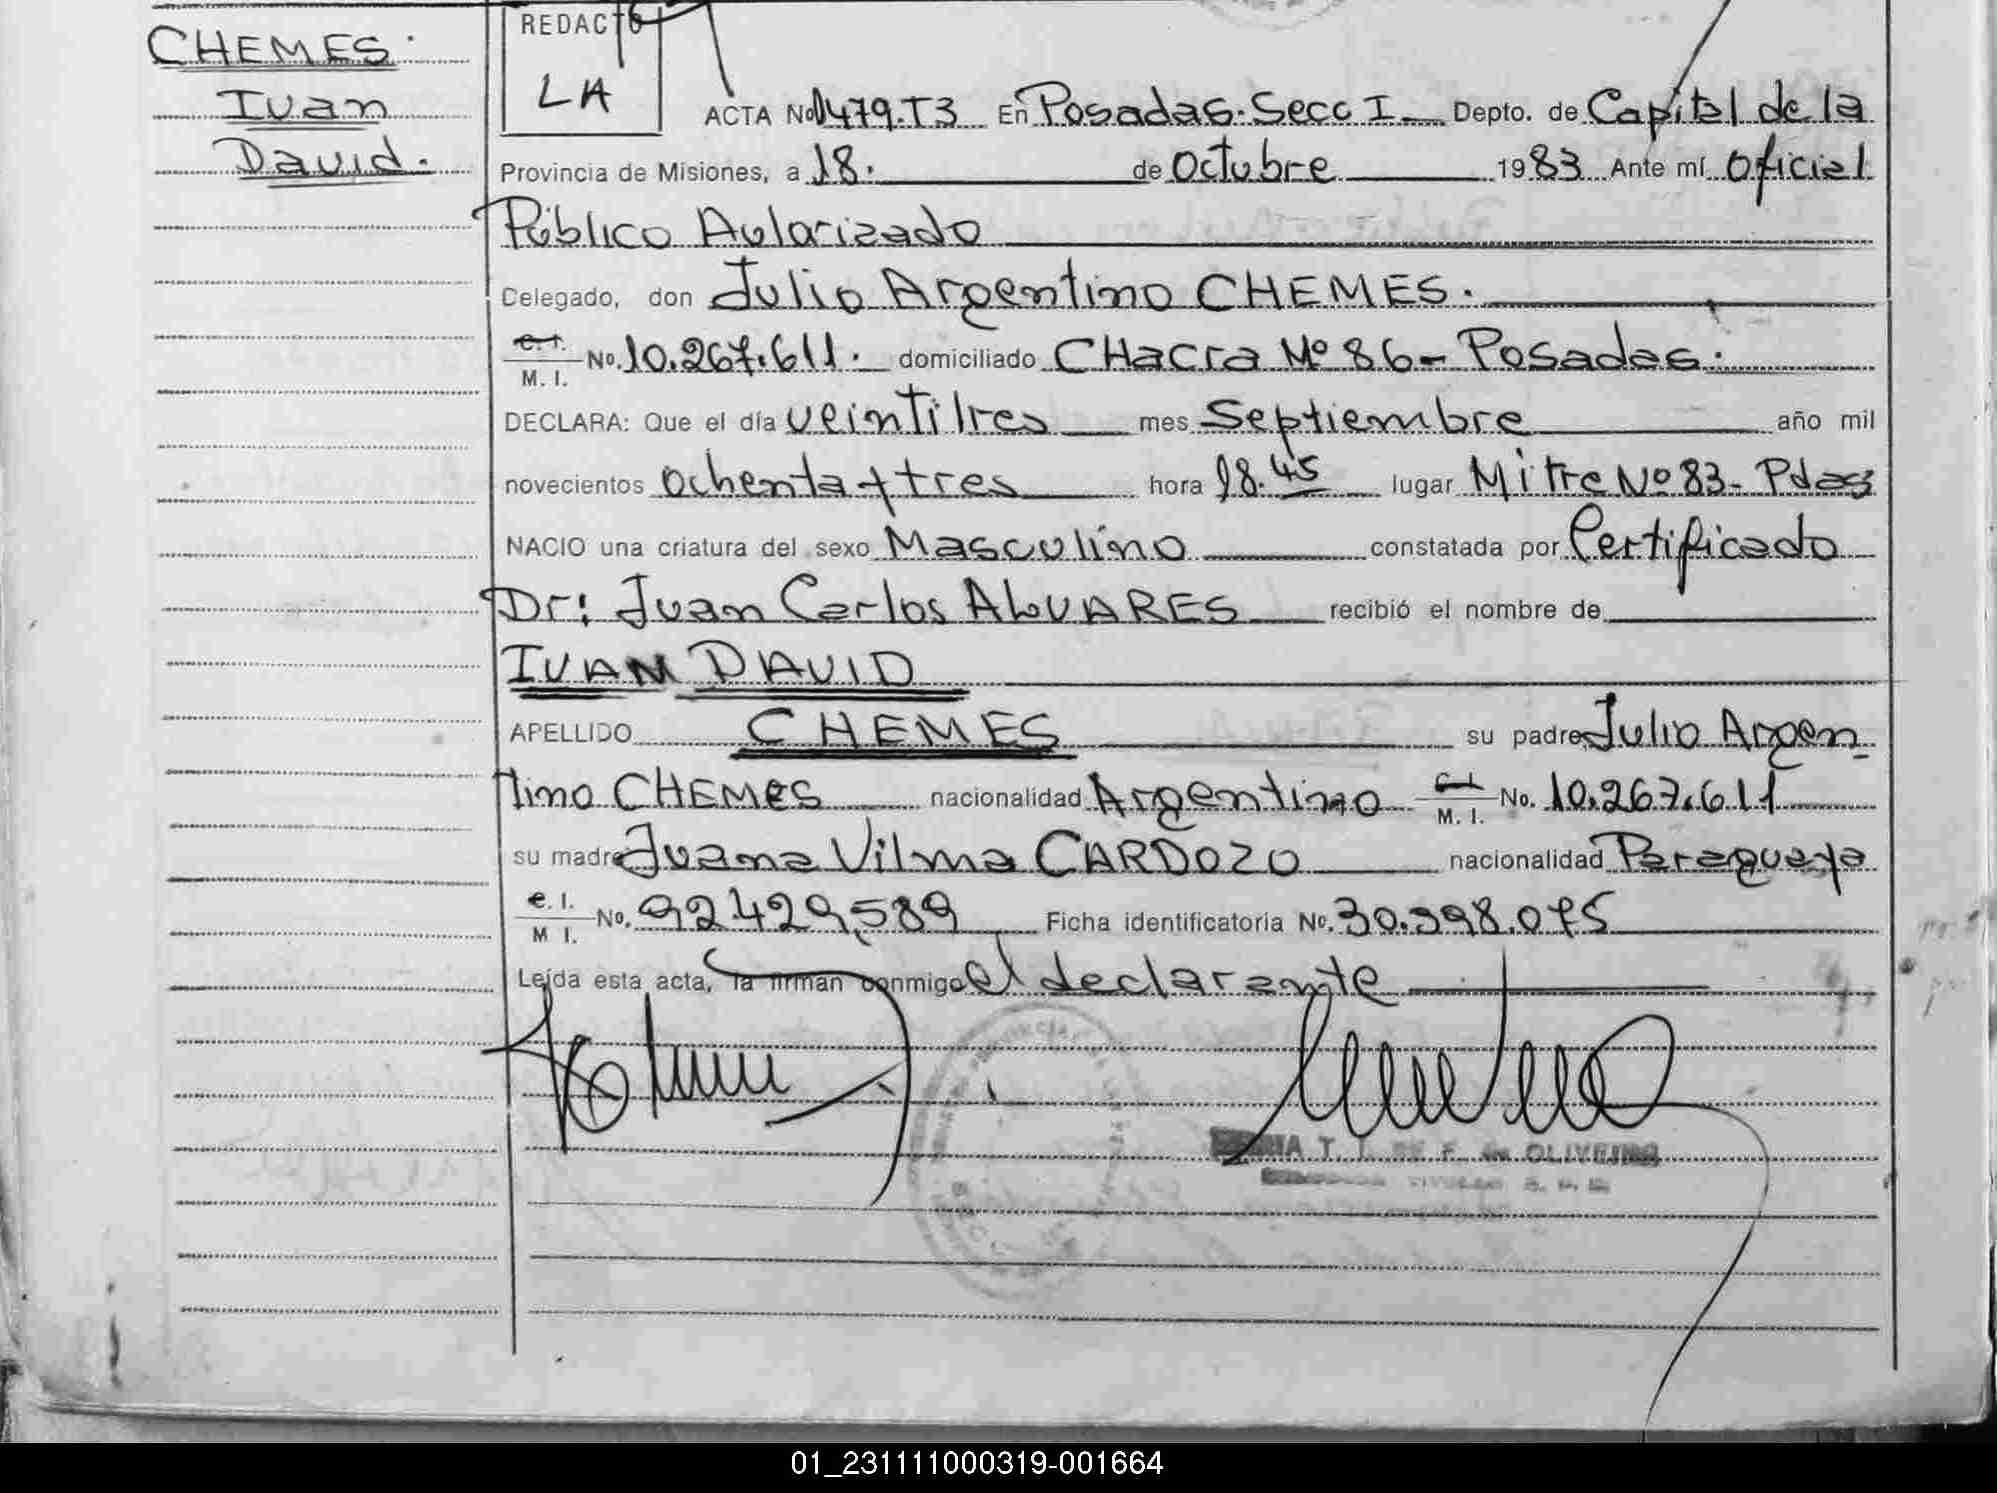 CHEMES.
Ivan
David.
REDACTO
LA
ACTA No 1479.T3 En Posadas. Secc I Depto. de Capital de la
Provincia de Misiones, a 18. de Octubre 1983 Ante mí Oficial
Público Autorizado
Delegado, don Julio Argentino CHEMES.
C.I. M. I. No. 10.267.611. domiciliado CHacra Nº 86 - Posadas.
DECLARA: Que el día veintitres mes Septiembre año mil
novecientos ochenta y tres hora 18.45 lugar Mitre Nº 83 - Pdas
NACIO una criatura del sexo Masculino constatada por Certificado
Dr: Juan Carlos ALVARES recibió el nombre de
IVAN DAVID
APELLIDO CHEMES su padre Julio Argen
tino CHEMES nacionalidad Argentino C.I. M. I. No. 10.267.611
su madre Juana Vilma CARDOZO nacionalidad Paraguaya
C. I. M I. No. 92429,589 Ficha identificatoria No. 30.398.075
Leída esta acta, la firman conmigo el declarante
T. F. de OLIVEIRA
01_231111000319-001664